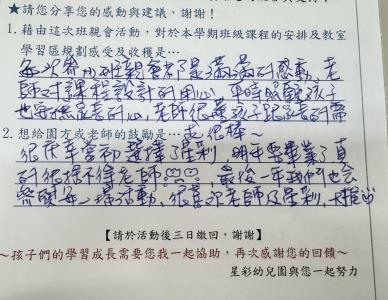 ★請您分享您的感動與建議，謝謝！
1. 藉由這次班親會活動，對於本學期班級課程的安排及教室
學習區規劃感受及收穫是…
每次參加班親會都是滿滿的感動，老
師對課程設計的用心，平時照顧孩子
也 的用心，老師很 孩子 的需
2. 想給園方或老師的鼓勵是… 也很棒~
很慶幸當初選擇了星彩，明年要畢業了真
的很捨不得老師 最後一年我們也會
每一場活動，很喜歡老師及星彩，
【請於活動後三日繳回，謝謝】
~孩子們的學習成長需要您我一起協助，再次感謝您的回饋~
星彩幼兒園與您一起努力